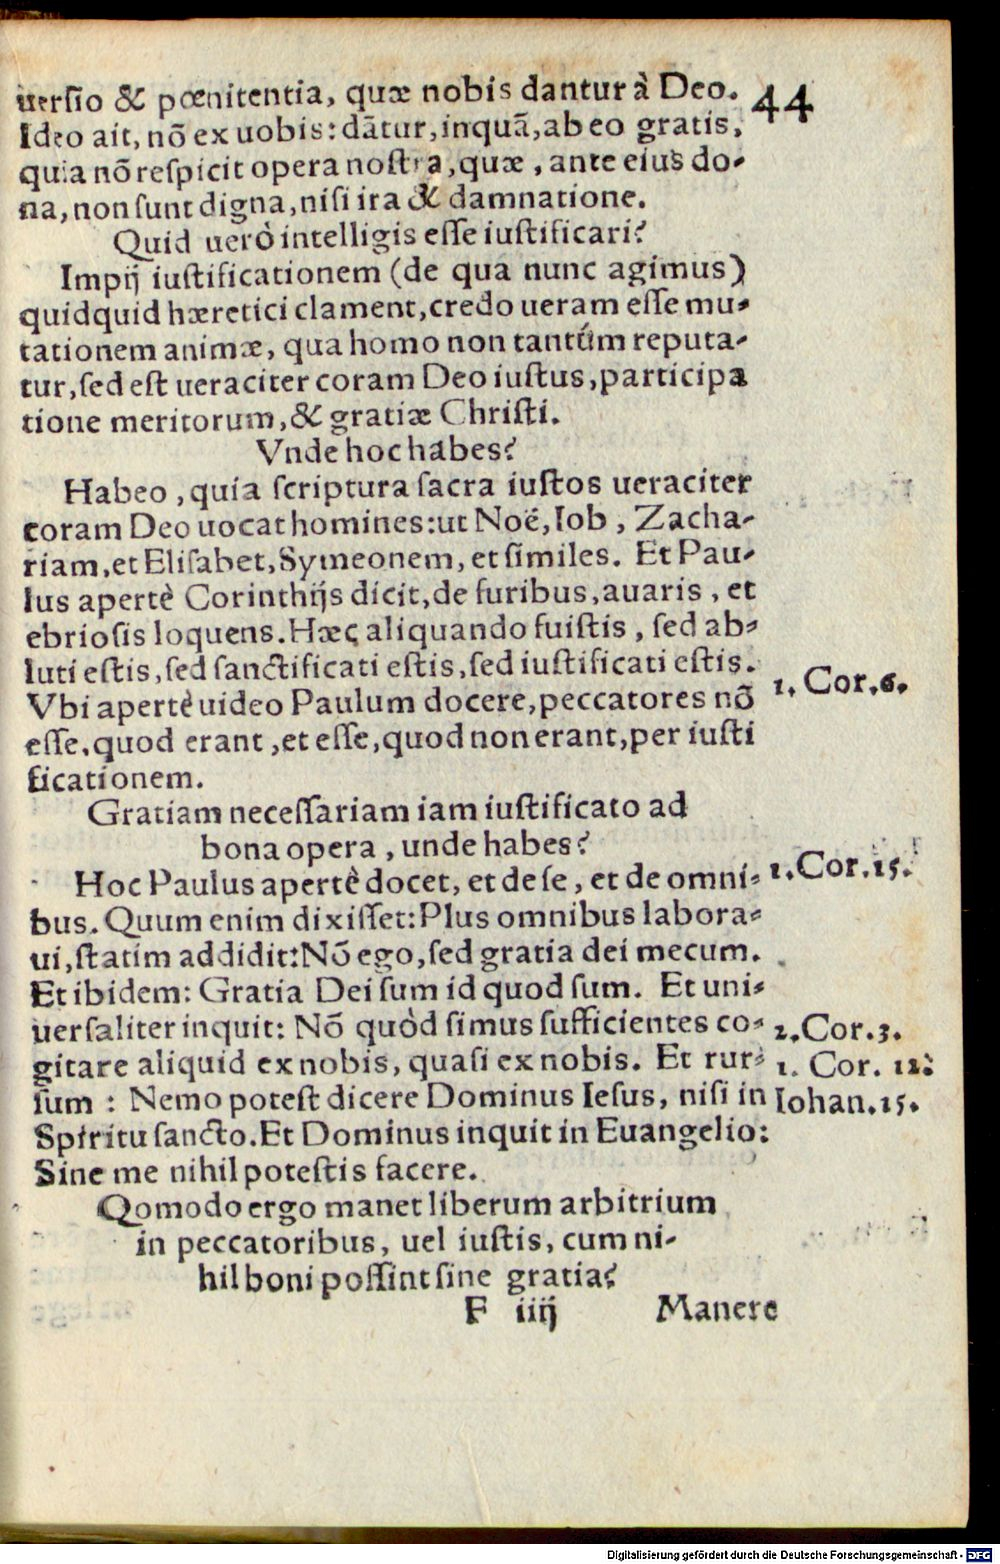 uersio & pœnitentia, quæ nobis dantur à Deo. 44
Ideo ait, nō ex uobis: dātur, inquā, ab eo gratis,
quia nō respicit opera nostra, quæ, ante eius do-
na, non sunt digna, nisi ira & damnatione.
Quid uerò intelligis esse iustificari?
Impij iustificationem (de qua nunc agimus)
quidquid hæretici clament, credo ueram esse mu-
tationem animæ, qua homo non tantúm reputa-
tur, sed est ueraciter coram Deo iustus, participa
tione meritorum, & gratiæ Christi.
Vnde hoc habes?
Habeo, quia scriptura sacra iustos ueraciter
coram Deo uocat homines: ut Noé, Iob, Zacha-
riam, et Elisabet, Symeonem, et similes. Et Pau-
lus apertè Corinthijs dicit, de furibus, auaris, et
ebriosis loquens. Hæc aliquando fuistis, sed ab-
luti estis, sed sanctificati estis, sed iustificati estis.
Vbi apertè uideo Paulum docere, peccatores nō 1. Cor. 6.
esse, quod erant, et esse, quod non erant, per iusti
ficationem.
Gratiam necessariam iam iustificato ad
bona opera, unde habes?
Hoc Paulus apertè docet, et de se, et de omni- 1. Cor. 15.
bus. Quum enim dixisset: Plus omnibus labora-
ui, statim addidit: Nō ego, sed gratia dei mecum.
Et ibidem: Gratia Dei sum id quod sum. Et uni-
uersaliter inquit: Nō quòd simus sufficientes co- 2. Cor. 3.
gitare aliquid ex nobis, quasi ex nobis. Et rur- 1. Cor. 12.
sum: Nemo potest dicere Dominus Iesus, nisi in Iohan. 15.
Spiritu sancto. Et Dominus inquit in Euangelio:
Sine me nihil potestis facere.
Qomodo ergo manet liberum arbitrium
in peccatoribus, uel iustis, cum ni-
hil boni possint sine gratia?
F iiij Manere
Digitalisierung gefördert durch die Deutsche Forschungsgemeinschaft - DFG